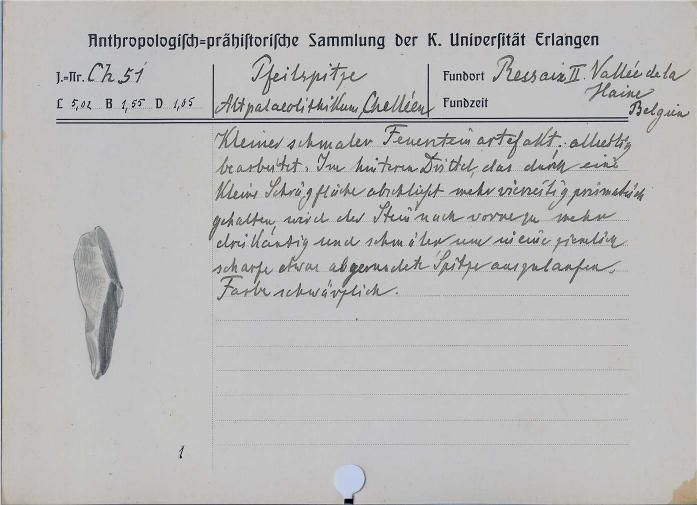 Anthropologisch=prähistorische Sammlung der K. Universität Erlangen
J.=Nr. Ch 51
L 5,02 B 1,55 D 1,05
Pfeilspitze
Altpalaeolithikum, Chelléen
Fundort Ressaix II. Vallée de la
Haine
Fundzeit Belgien
Kleiner schmaler Feuersteinartefakt, allseitig
bearbeitet. Im hinteren Drittel, das durch eine
kleine Schrägfläche abschließt mehr vierseitig prismatisch
gehalten, wird der Stein nach vorne zu mehr
dreikantig und schmäler um in eine ziemlich
scharfe etwas abgerundete Spitze auszulaufen.
Farbe schwärzlich.
1